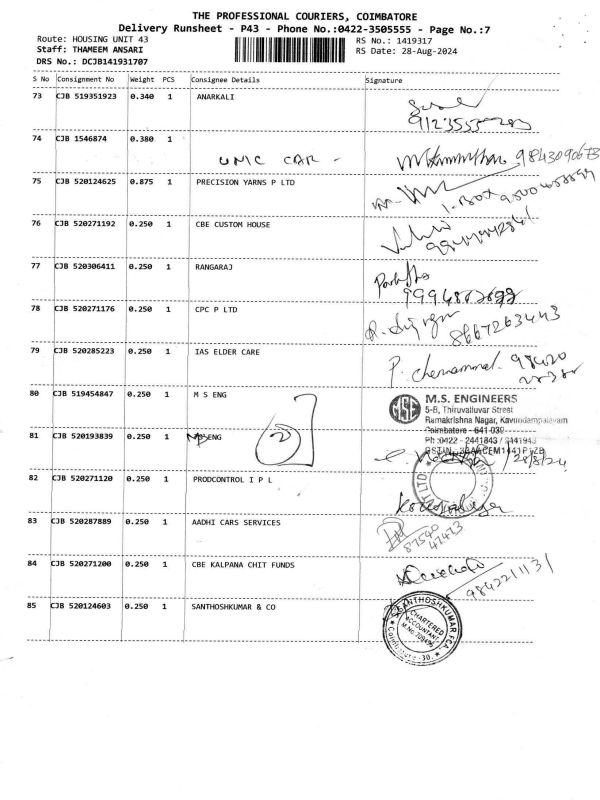 THE PROFESSIONAL COURIERS, COIMBATORE
Delivery Runsheet - P43 - Phone No.:0422-3505555 - Page No.:7
Route: HOUSING UNIT 43
RS No.: 1419317
Staff: THAMEEM ANSARI
RS Date: 28-Aug-2024
DRS No.: DCJB141931707
S No Consignment No Weight PCS Consignee Details Signature
73 CJB 519351923 0.340 1 ANARKALI
74 CJB 1546874 0.380 1
UNIC CAR - 9843090673
75 CJB 520124625 0.875 1 PRECISION YARNS P LTD
76 CJB 520271192 0.250 1 CBE CUSTOM HOUSE
77 CJB 520306411 0.250 1 RANGARAJ
78 CJB 520271176 0.250 1 CPC P LTD
8667263443
79 CJB 520285223 0.250 1 IAS ELDER CARE
P. 98420
80 CJB 519454847 0.250 1 M S ENG
MSE M.S. ENGINEERS
5-B, Thiruvalluvar Street
Ramakrishna Nagar, Kavundampalayam
Coimbatore - 641 030
Ph :0422 - 2441843 / 2441943
81 CJB 520193839 0.250 1 ENG
2
28/8/24
82 CJB 520271120 0.250 1 PRODCONTROL I P L
83 CJB 520287889 0.250 1 AADHI CARS SERVICES
87540
47473
84 CJB 520271200 0.250 1 CBE KALPANA CHIT FUNDS
9842211131
85 CJB 520124603 0.250 1 SANTHOSHKUMAR & CO
SANTHOSHKUMAR, FCA.
CHARTERED
ACCOUNTANT
Coimbatore-30.